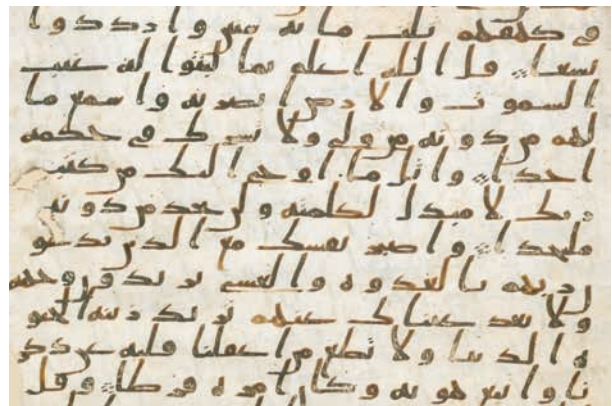 في كهفهم ثلث مائه سنين وازددوا
تسعا قل الله اعلم بما لبثوا له غيب
السموت والارض ابصر به واسمع ما
لهم من دونه من ولي ولا يشرك في حكمه
احدا واتل ما اوحي اليك من كتب
ربك لا مبدل لكلمته ولن تجد من دونه
ملتحدا واصبر نفسك مع الذين يدعو
ن ربهم بالغدوه والعشي يريدون وجهه
ولا تعد عينك عنهم تريد زينه الحيو
ه الدنيا ولا تطع من اغفلنا قلبه عن ذكر
نا واتبع هويه وكان امره فرطا وقل